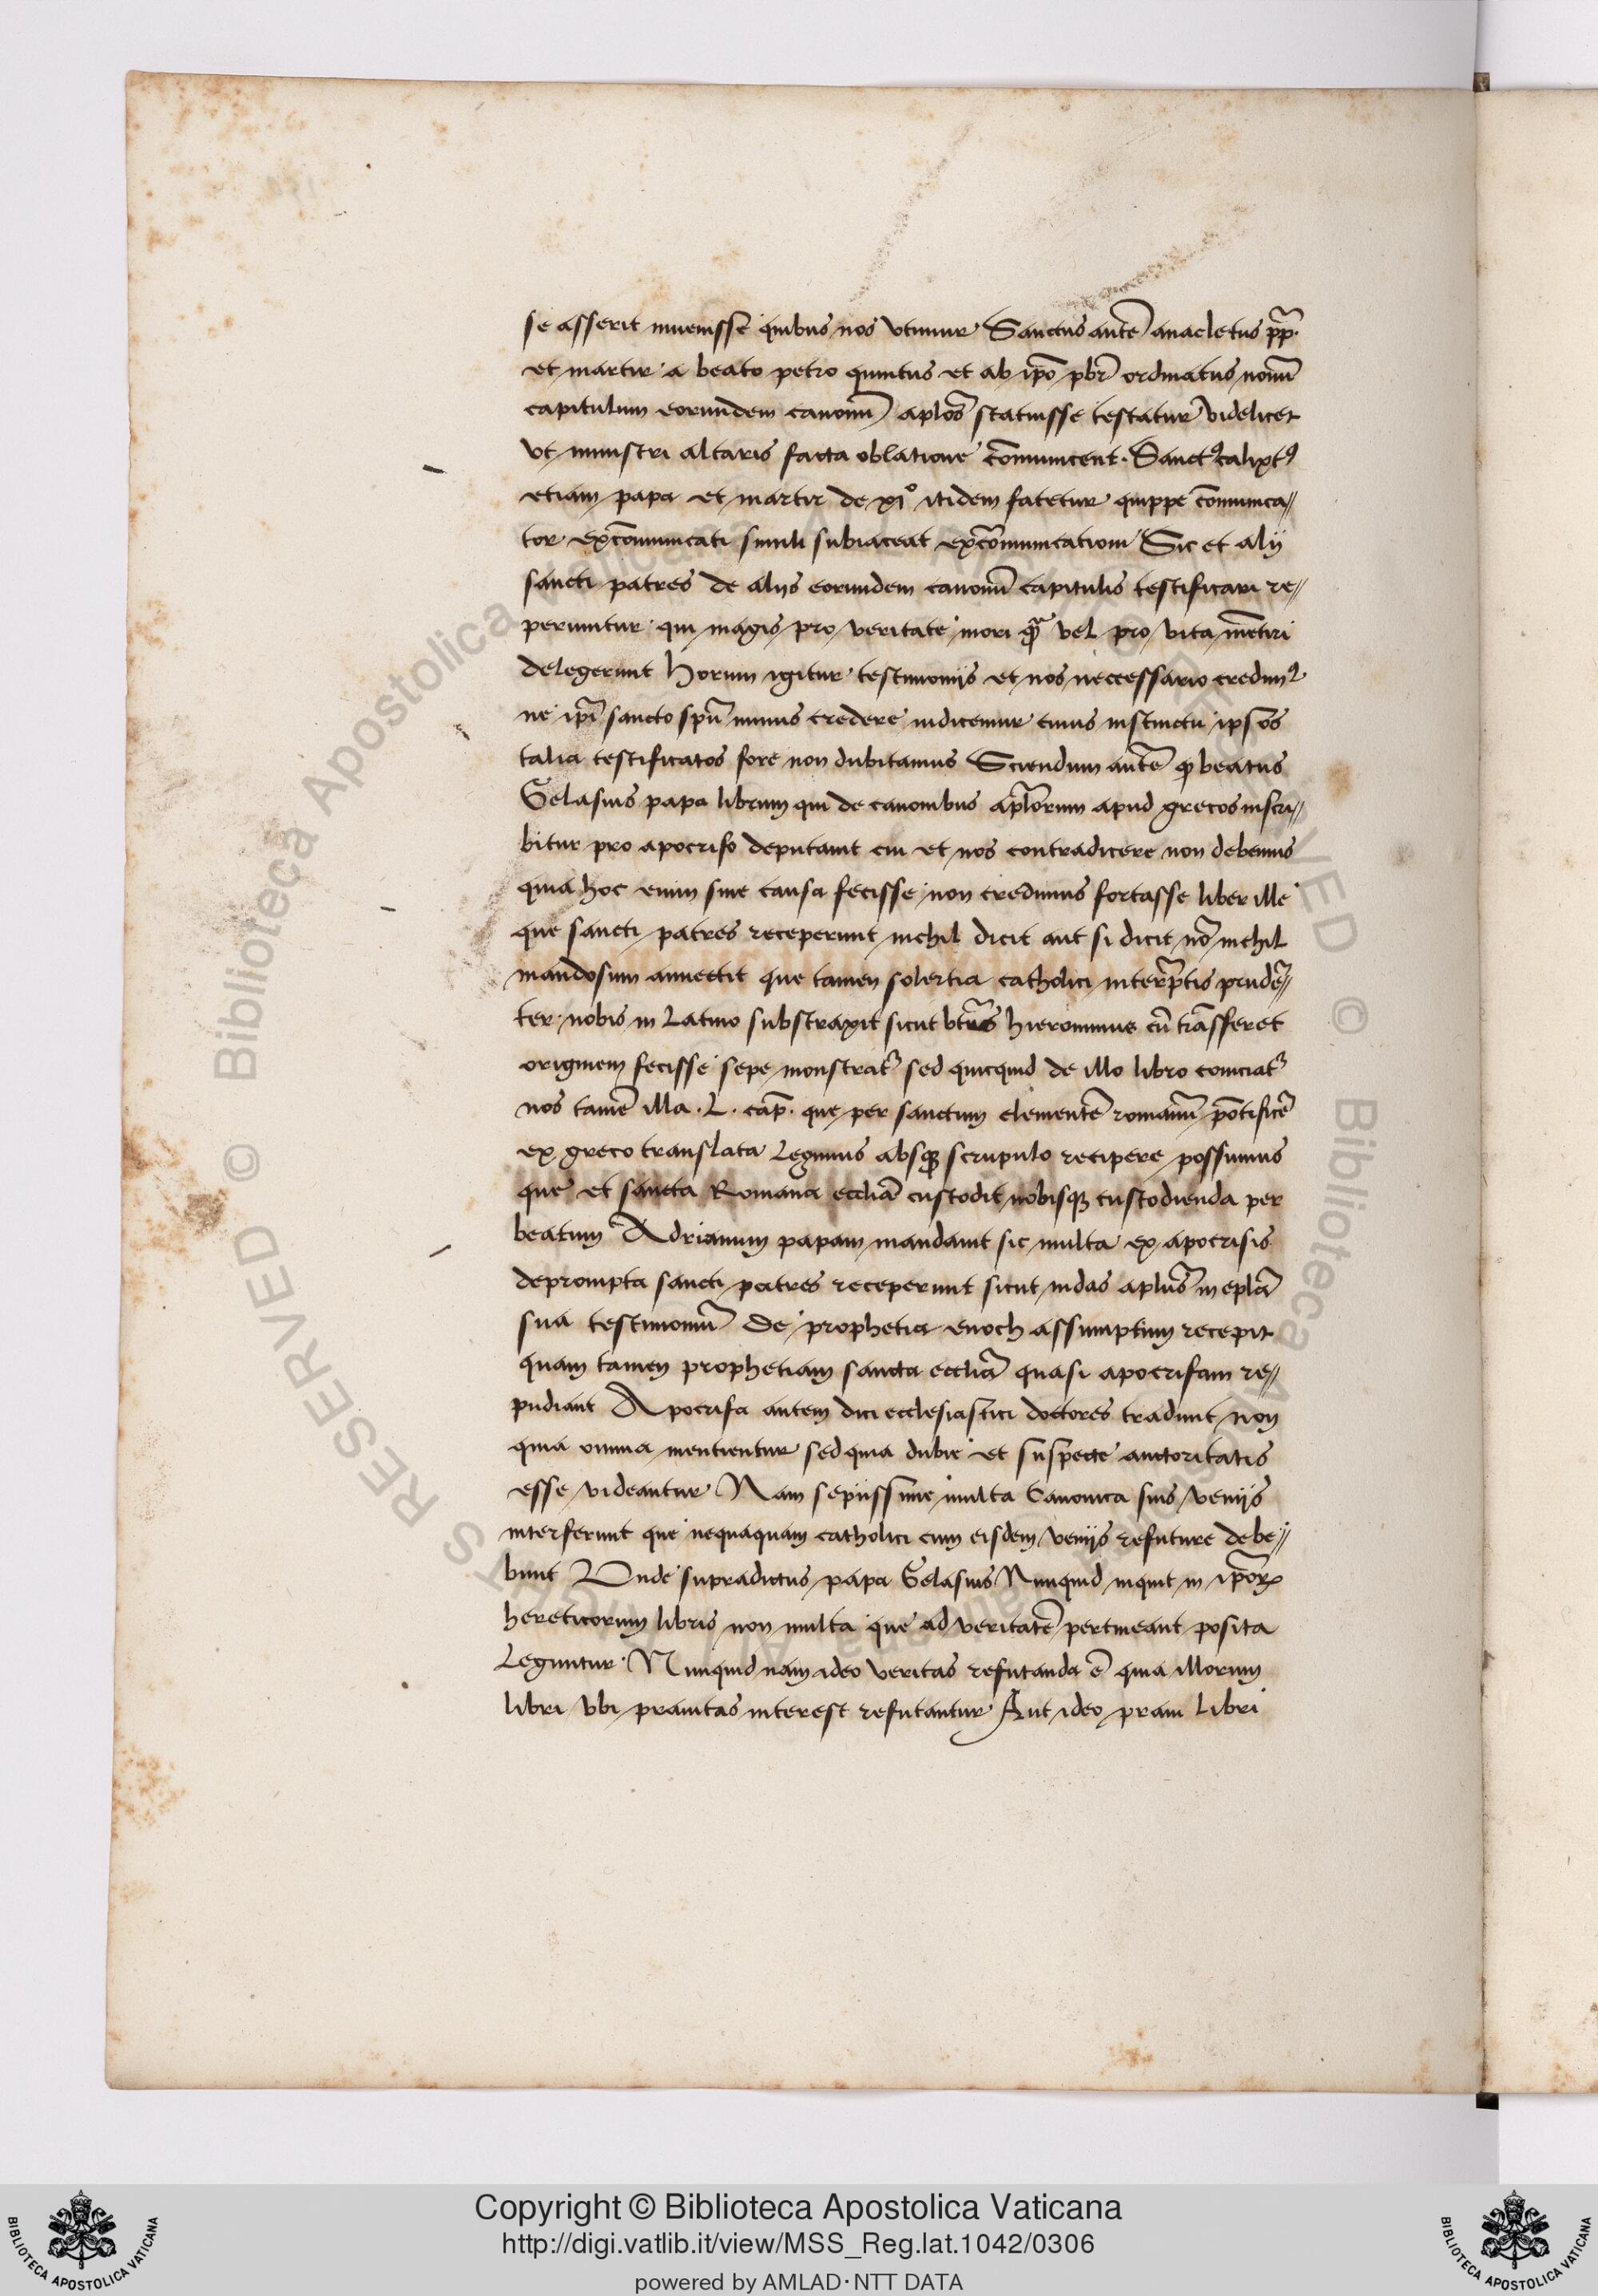 se asserit inuenisse quibus nos vtimur Sanctus autē anacletus pp̄.
et martir a beato petro quintus et ab ip̄o pb̄r ordinatus nonū
capitulum eorundem canonū aplōs statuisse testatur videlicet
vt ministri altaris facta oblatione cōmunicent. Sanctꝰ calixtꝰ
etiam papa et martir de xiº itidem fatetur quippe cōmunica//
tor excōmunicati simili subiaceat excōmunicationi Sic et alij
sancti patres de alijs eorundem canonū capitulis testificari re//
periuntur qui magis pro veritate mori qᷓ vel pro vita mētiri
delegerunt horum igitur testimonijs et nos neccessario credimꝰ
ne ip̄i sancto spū minus credere iudicemur cuius instinctu ipsos
talia testificatos fore non dubitamus Sciendum autē ꝙ beatus
Gelasius papa librum qui de canonibus aplōrum apud grecos inscri//
bitur pro apocrifo deputauit cui et nos contradicere non debemus
quia hoc enim sine causa fecisse non credimus fortasse liber ille
que sancti patres receperunt nichil dicit aut si dicit nō nichil
mandosum annectit que tamen solertia catholici interp̄tis prudē//
ter nobis in latino substraxit sicut btūs hieronimus cū trāsferet
originem fecisse sepe monstratᷣ sed quicquid de illo libro coniciatᷣ
nos tamē illa .L. cap̄. que per sanctum clementē romanū pōtificē
ex greco translata legimus absqꝫ scrupulo recipere possumus
que et sancta Romana eccliā custodit nobisqꝫ custodienda per
beatum Adrianum papam mandauit sic multa ex apocrisis
deprompta sancti patres receperunt sicut iudas aplūs in eplā
sua testimoniū de prophetia enoch assumptum recepit
quam tamen prophetiam sancta eccliā quasi apocrifam re//
pudiant Apocrifa autem dici ecclesiastici doctores tradunt non
quia omnia mentientur sed quia dubie et suspecte auctoritatis
esse videantur Nam sepiissime multa Canonica suis veniis
interferunt que nequaquam catholici cum eisdem veniis refutare debe//
bunt Vnde supradictus papa Gelasius Nunquid inquit in ip̄oꝝ
hereticorum libris non multa que ad veritatē pertineant posita
leguntur Nunquid nam ideo veritas refutanda ē quia illorum
libri vbi prauitas interest refutantur Aut ideo praui libri
Copyright © Biblioteca Apostolica Vaticana
http://digi.vatlib.it/view/MSS_Reg.lat.1042/0306
powered by AMLAD·NTT DATA